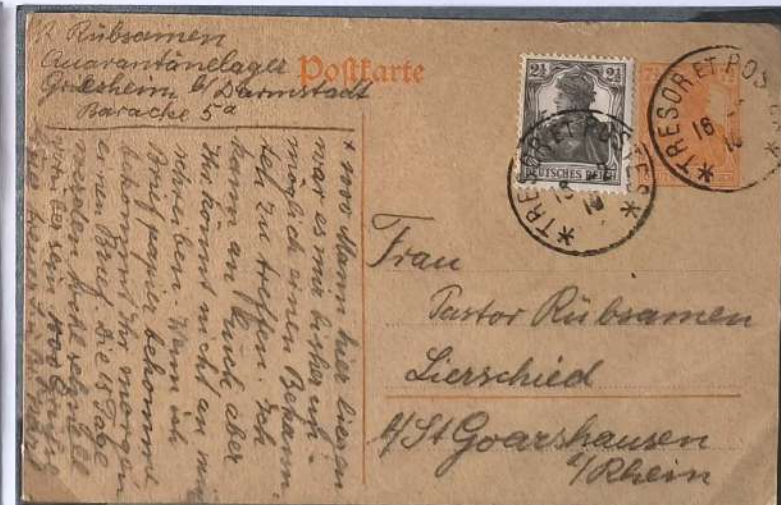 R Rübsamen
Quarantänelager
Griesheim b/ Darmstadt
Baracke 5a
Postkarte
2½ 2½
DEUTSCHES REICH
7½
TRESOR ET POSTES
16
TRESOR ET POSTES
16
Frau
Pastor Rübsamen
Lierschied
b/St Goarshausen
a/Rhein
Mann hier liegen
war es mir bisher un-
möglich einen Bekann-
ten zu treffen. Ich
kann an Euch aber
Ihr könnt nicht an mich
schreiben. Wenn ich
Briefpapier bekomme
bekommt Ihr morgen
einen Brief. Die 15 Tage
werden schnell